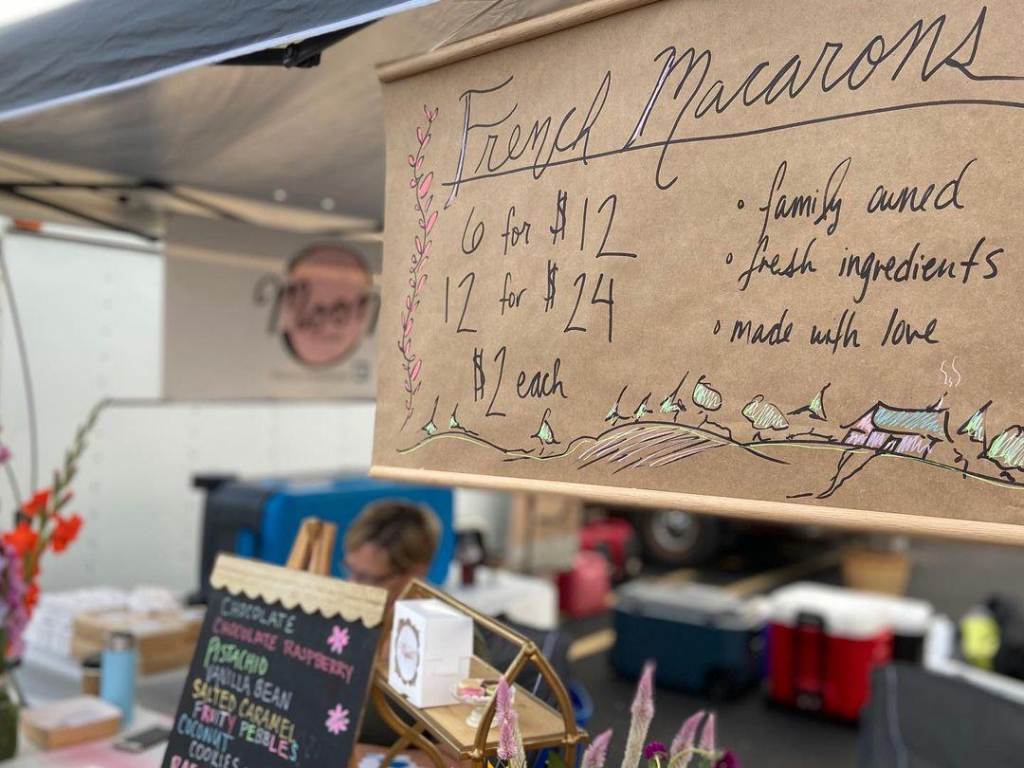 French Macarons
6 for $12
12 for $24
$2 each
• family owned
• fresh ingredients
• made with love
CHOCOLATE
CHOCOLATE RASPBERRY
PISTACHIO
VANILLA BEAN
SALTED CARAMEL
FRUITY PEBBLES
COCONUT
COOKIES